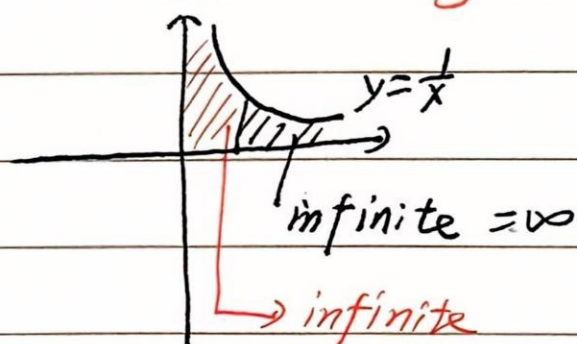 y = 1/x
infinite = ∞
infinite